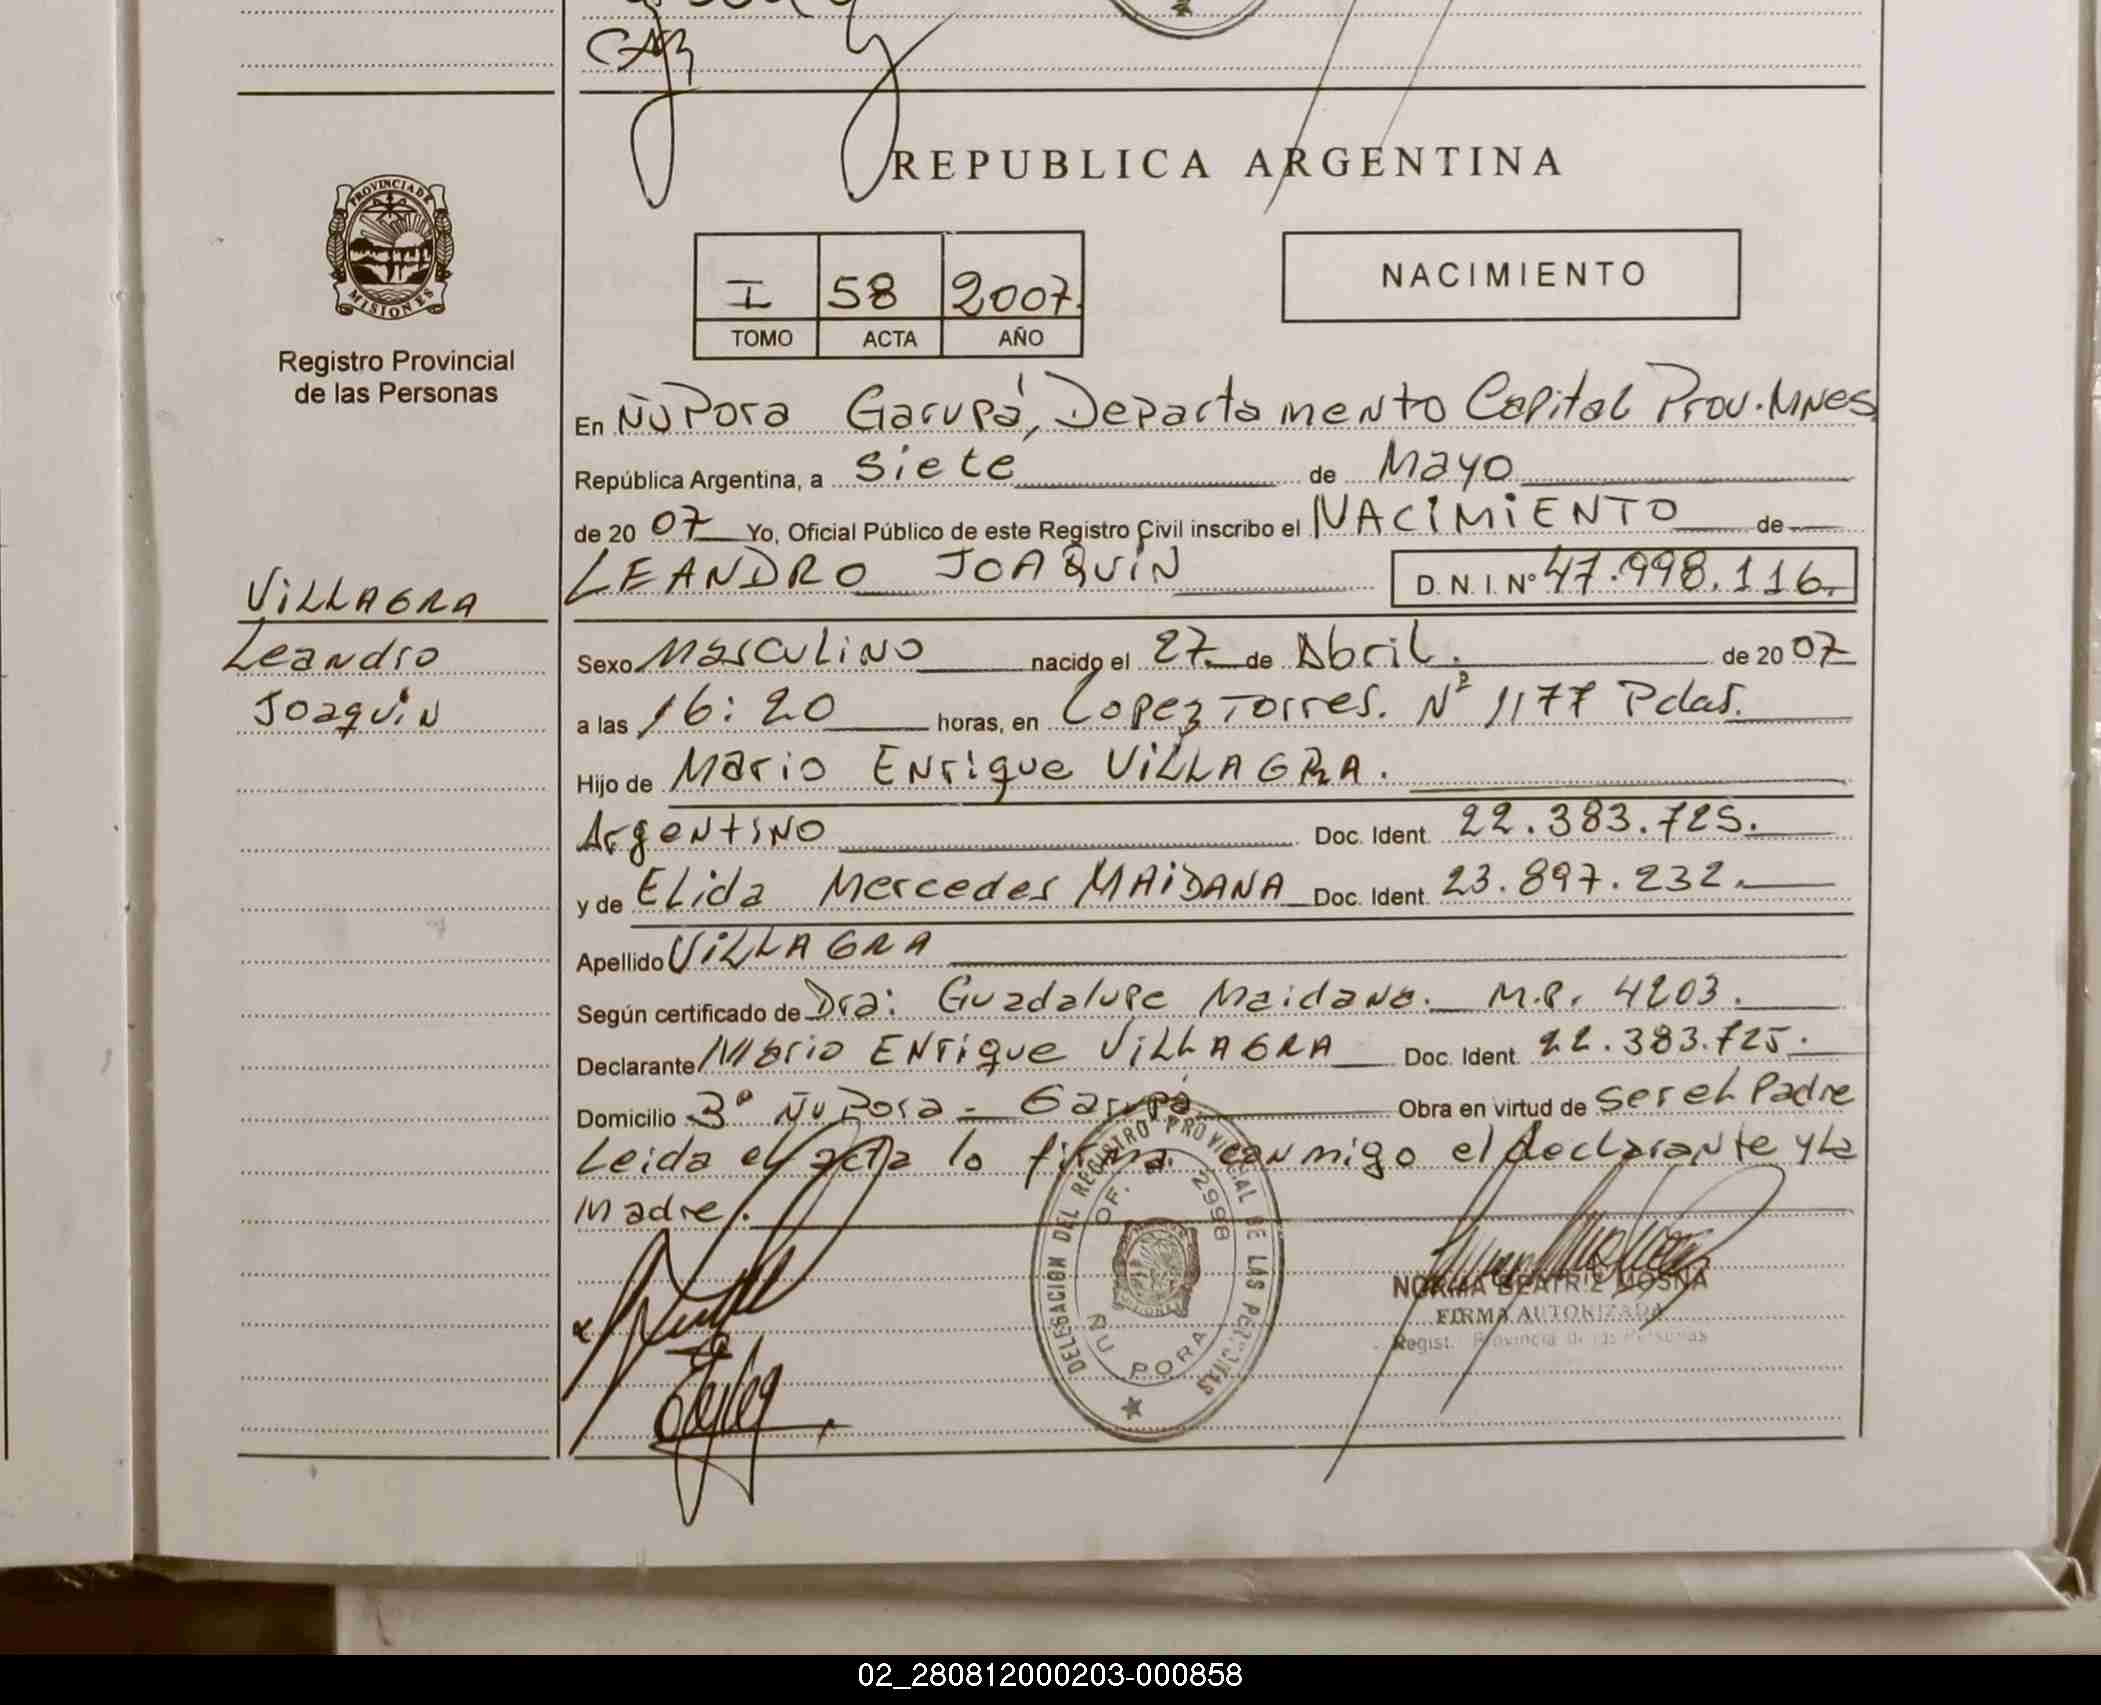 CAR
REPUBLICA ARGENTINA
PROVINCIA DE
MISIONES
Registro Provincial
de las Personas
I 58 2007.
TOMO ACTA AÑO
NACIMIENTO
En Ñu Pora Garupá, Departamento Capital Prov. Mnes
República Argentina, a siete de Mayo
de 20 07 Yo, Oficial Público de este Registro Civil inscribo el NACIMIENTO de
LEANDRO JOAQUIN D.N.I. Nº 47.998.116.
VILLAGRA
Leandro
Joaquin
Sexo Masculino nacido el 27 de Abril. de 20 07
a las 16:20 horas, en Lopez Torres. Nº 1177 Pdas.
Hijo de Mario Enrique VILLAGRA.
Argentino Doc. Ident. 22.383.725.
y de Elida Mercedes MAIDANA Doc. Ident. 23.897.232.
Apellido VILLAGRA
Según certificado de Dra: Guadalupe Maidana. M.P. 4203.
Declarante Mario Enrique VILLAGRA Doc. Ident. 22.383.725.
Domicilio 3º Ñu Pora - Garupá Obra en virtud de ser el Padre
Leida el acta lo firma conmigo el declarante y la
Madre.
DELEGACION DEL REGISTRO PROVINCIAL DE LAS PERSONAS
OF. 2998
ÑU PORA
NORMA BEATRIZ MOSNA
FIRMA AUTORIZADA
Regist. Provincial de las Personas
02_280812000203-000858